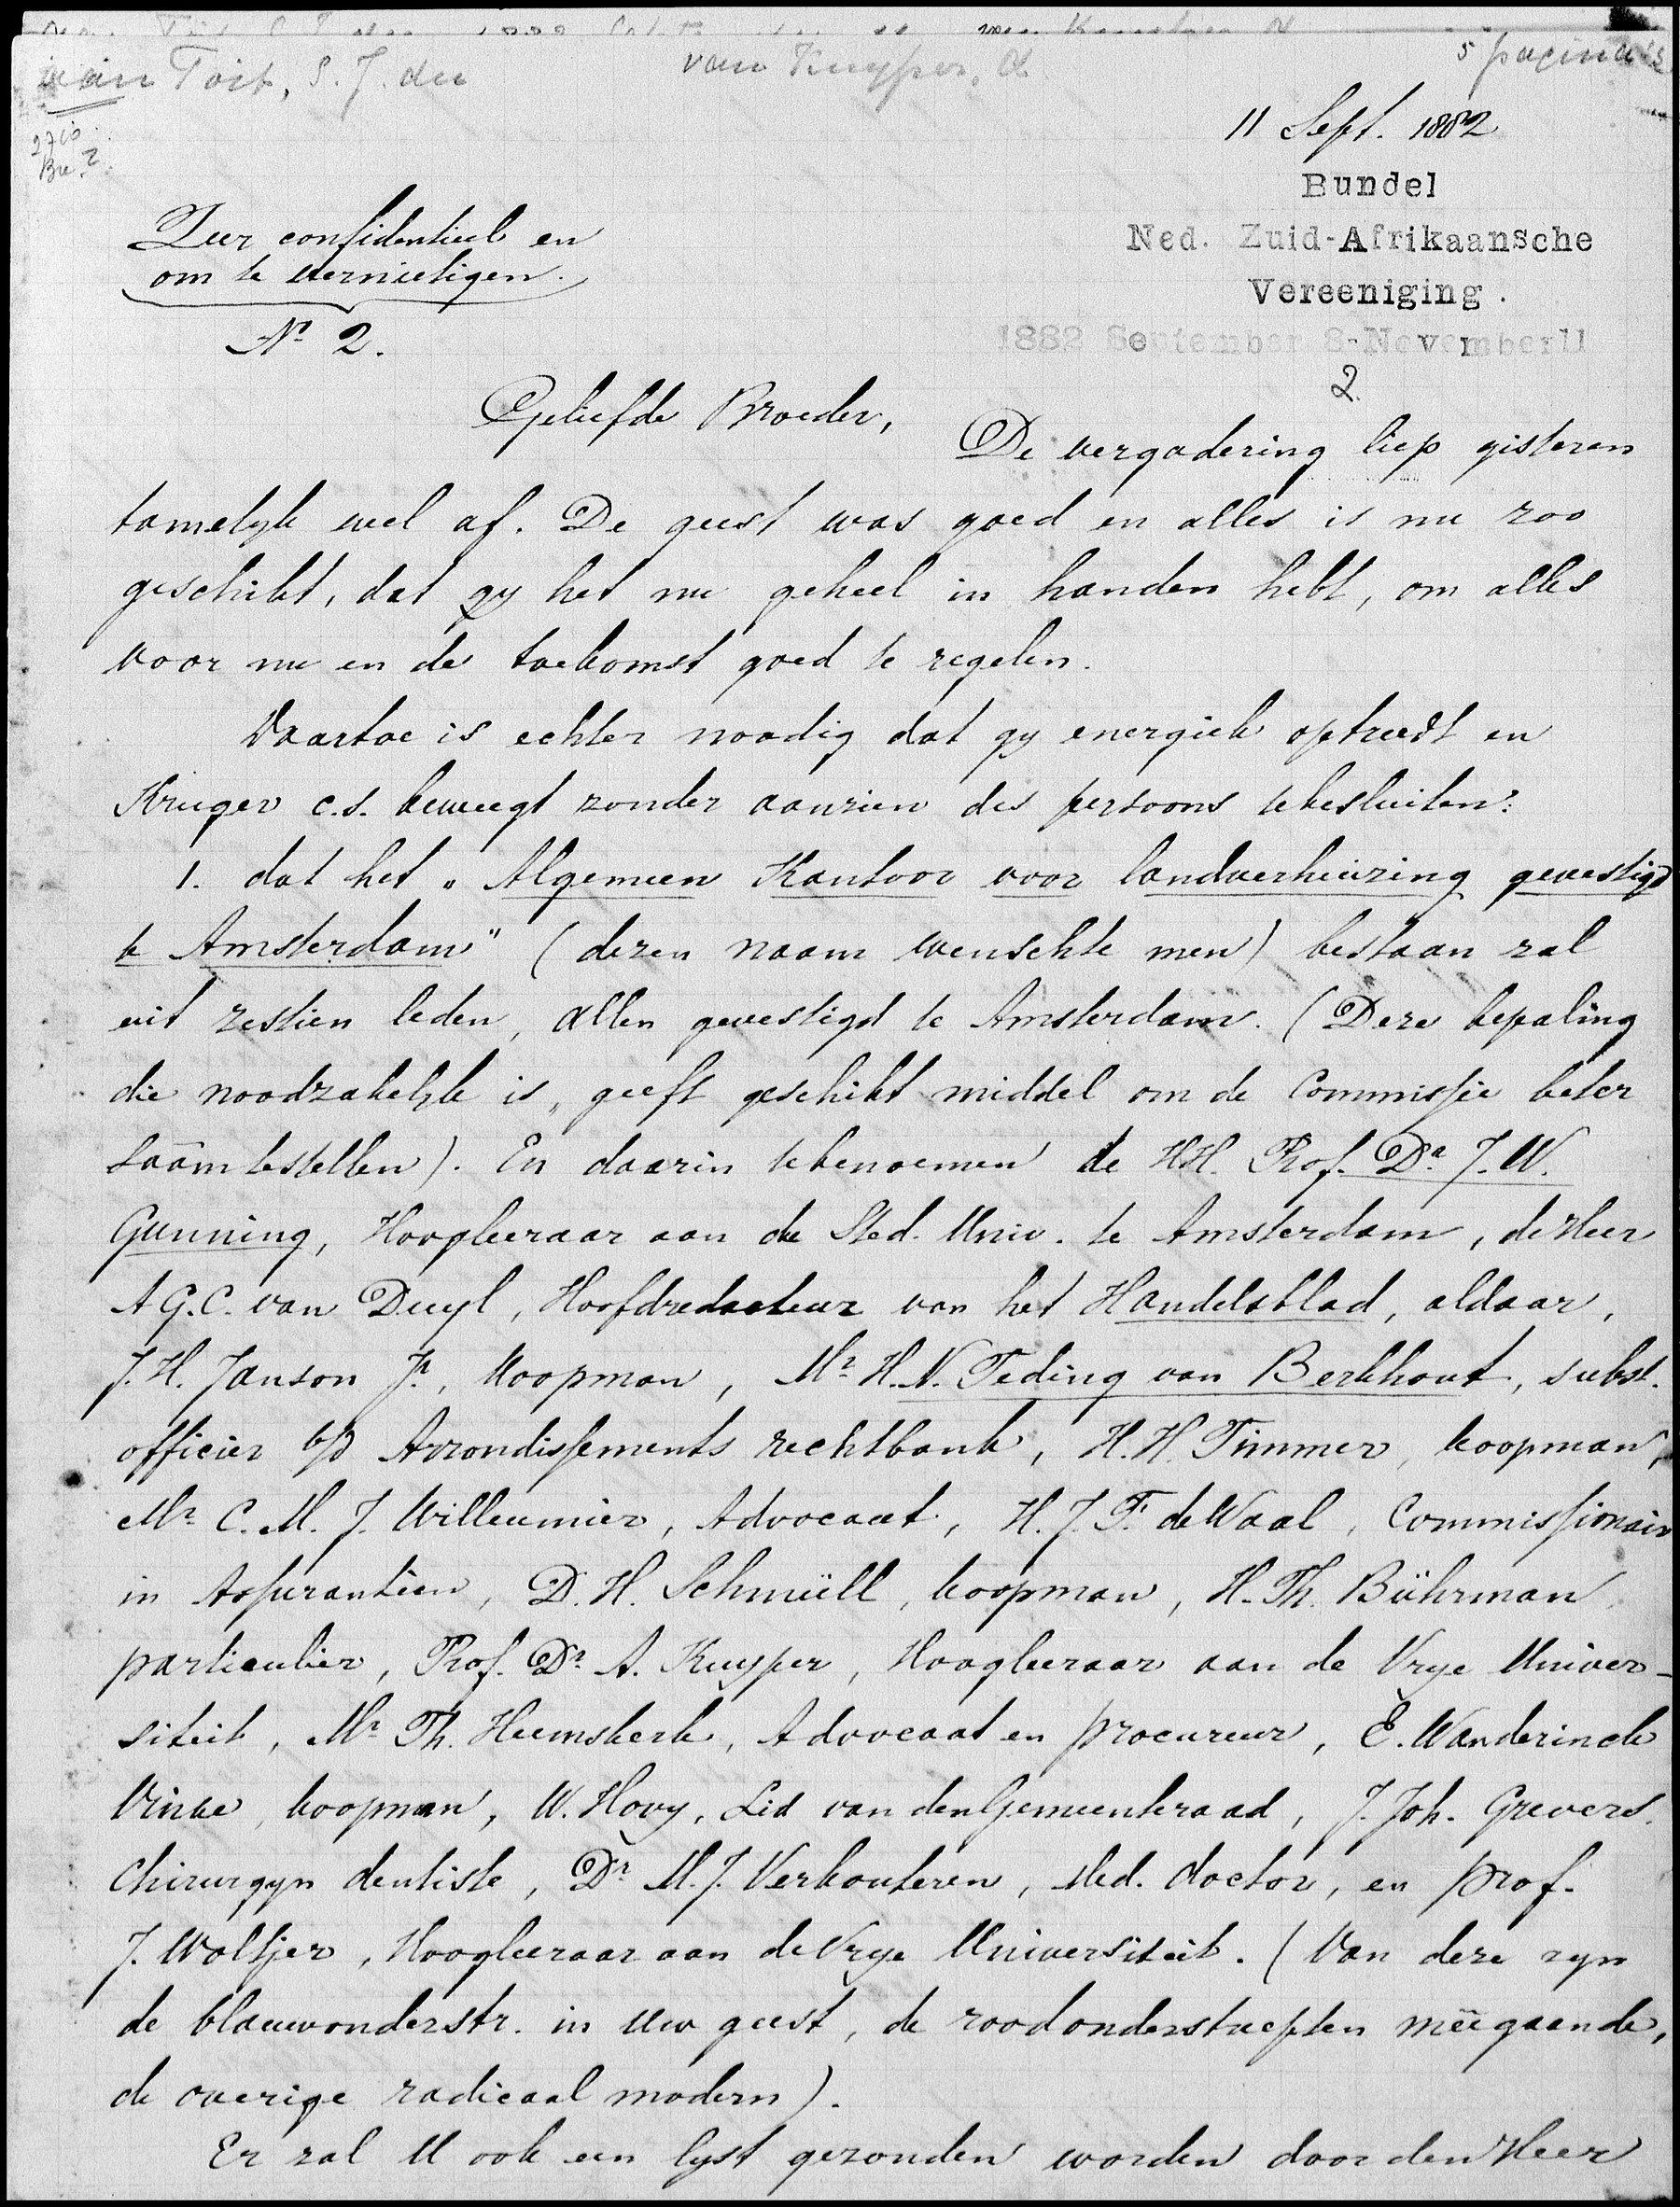 aan Toit, S. J. du
van Kuyper, A.
5 pagina's
11 Sept. 1882
Bundel
Ned. Zuid-Afrikaansche
Vereeniging.
1882 September 8-November 11
2.
Zeer confidentieel en
om te vernietigen.
No 2.
Geliefde Broeder,
De vergadering liep gisteren
tamelyk wel af. De geest was goed en alles is nu zoo
geschikt, dat gy het nu geheel in handen hebt, om alles
voor nu en de toekomst goed te regelen.
Daartoe is echter noodig dat gy energiek optreedt en
Kruger c.s. beweegt zonder aanzien des persoons te besluiten:
1. dat het "Algemeen Kantoor voor landverhuizing gevestigd
te Amsterdam" (dezen naam wenschte men) bestaan zal
uit zestien leden, allen gevestigd te Amsterdam. (Deze bepaling
die noodzakelyk is, geeft geschikt middel om de Commissie beter
saâm te stellen). En daarin te benoemen de HH. Prof. Dr J. W.
Gunning, Hoogleeraar aan de Sted. Univ. te Amsterdam, de Heer
A G. C. van Duyl, Hoofdredacteur van het Handelsblad, aldaar,
J. H. Janson Jr, Koopman, Mr H. N. Teding van Berkhout, subst.
officier b/d Arrondissements rechtbank, H. H. Timmer, koopman,
Mr C. M. J. Willeumier, Advocaat, H. J. F. de Waal, Commissionair
in Assurantien, D. H. Schmüll, koopman, H. Th. Bührman,
particulier, Prof. Dr A. Kuyper, Hoogleeraar aan de Vrye Univer-
siteit, Mr Th. Heemskerk, Advocaat en procureur, E. Wanderinck
Vinke, koopman, W. Hovy, Lid van den Gemeenteraad, J. Joh. Grevers.
Chirurgyn dentiste, Dr M. J. Verkouteren, Med. doctor, en prof.
J. Woltjer, Hoogleeraar aan de Vrye Universiteit. (Van deze zyn
de blauwonderstr. in Uw geest, de roodonderstreepten meêgaande,
de overige radicaal modern).
Er zal U ook een lyst gezonden worden door den Heer